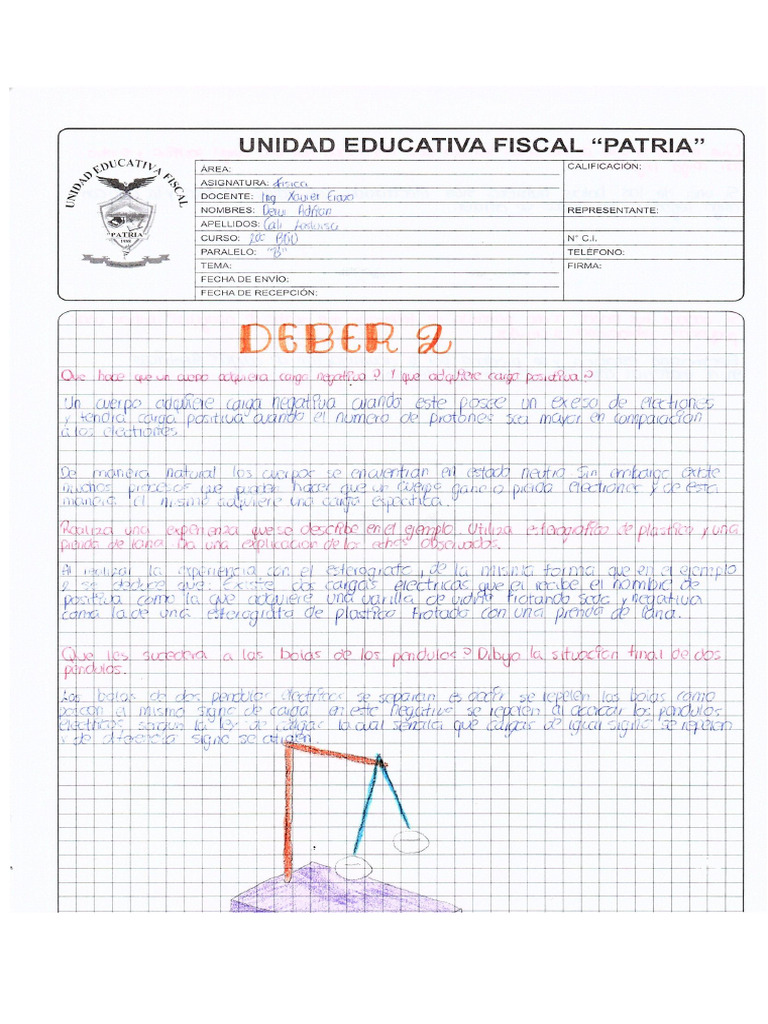 UNIDAD EDUCATIVA FISCAL “PATRIA”
UNIDAD EDUCATIVA FISCAL
"PATRIA"
AREA:
ASIGNATURA: Fisica
DOCENTE: Ing Xavier
NOMBRES: Adrian
APELLIDOS: Cali
CURSO: 2do BGU
PARALELO: "B"
TEMA:
FECHA DE ENVÍO:
FECHA DE RECEPCIÓN:
CALIFICACIÓN:
REPRESENTANTE:
N° C.I.
TELÉFONO:
FIRMA:
DEBER 2
Que hace que un cuerpo adquiera carga negativa? Y que adquiere carga posiativa?
Un cuerpo adquiere carga negativa cuando este posee un exeso de electrones
y tendra carga positiva cuando el numero de protones sea mayor en comparación
a los electrones.
De manera natural los cuerpos se encuentran en estado neutro sin embargo existe
muchos procesos que pueden hacer que un cuerpo gane o pierda electrones y de esta
manera el mismo adquiere una carga especifica.
Realiza una experienza que se describe en el ejemplo. Utiliza esferografico de plastico y una
prenda de lana. Da una explicacion de los echos observados.
Al realizar la experiencia con el esferografo y de la misma forma que en el ejemplo
y se deduce que: Existe dos cargas electricas que el recibe el nombre de
positiva como la que adquiere una varilla de vidrio frotando seda y negativa
como la de una esferografa de plastico frotado con una prenda de lana.
Que les sucedera a las bolas de los pendulos? Dibujo la situacion final de dos
pendulos.
Las bolas de dos pendulos electricos se separan es decir se repelen las bolas como
poscen el mismo signo de carga en este negativo se repelen al acercar los pendulos
electricos segun la ley de cargas la cual señala que cargas de igual signo se repelen
y de diferencia signo se atraen.